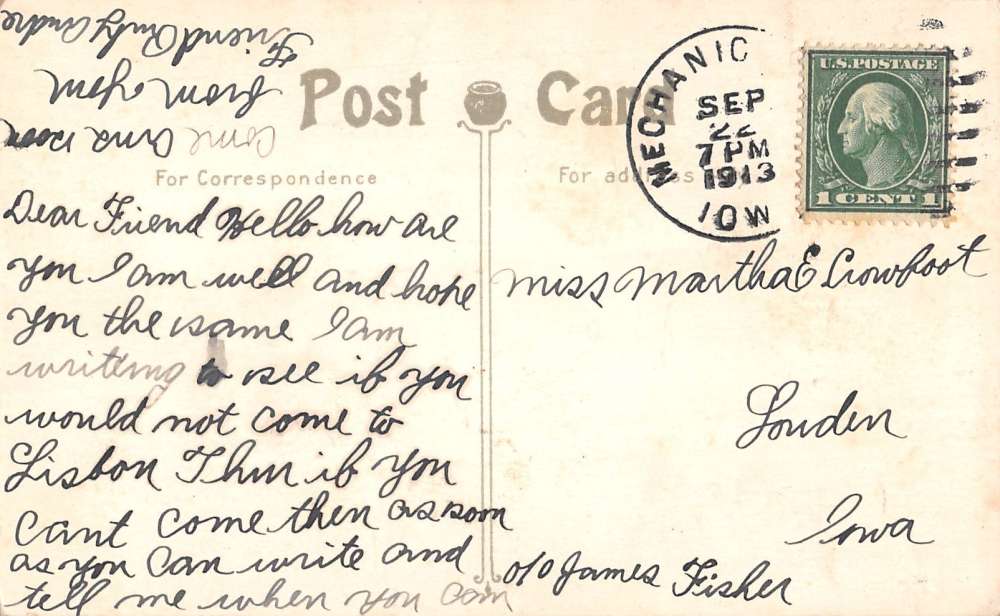 Post Card
For Correspondence
For address
MECHANIC
SEP
22
7 PM
1913
IOW
U.S. POSTAGE
1 CENT 1
Dear Friend Hello how are
you I am well and hope
you the same I am
writting to see if you
would not come to
Lisbon Thur if you
cant come then as soon
as you can write and
tell me when you can
come and
from your
Friend Ruby Andre
Miss Martha E Crowfoot
Louden
Iowa
c/o James Fisher